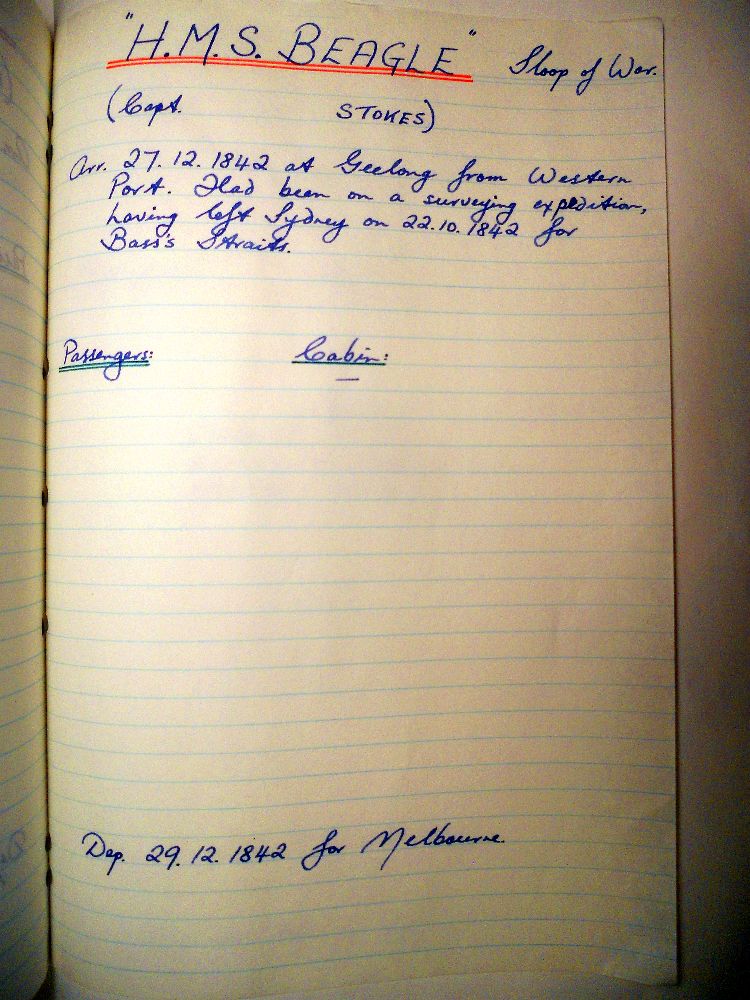 "H.M.S. BEAGLE" Sloop of War.
(Capt. STOKES)
Arr. 27.12.1842 at Geelong from Western
Port. Had been on a surveying expedition,
having left Sydney on 22.10.1842 for
Bass's Straits.
Passengers: Cabin:
—
Dep. 29.12.1842 for Melbourne.